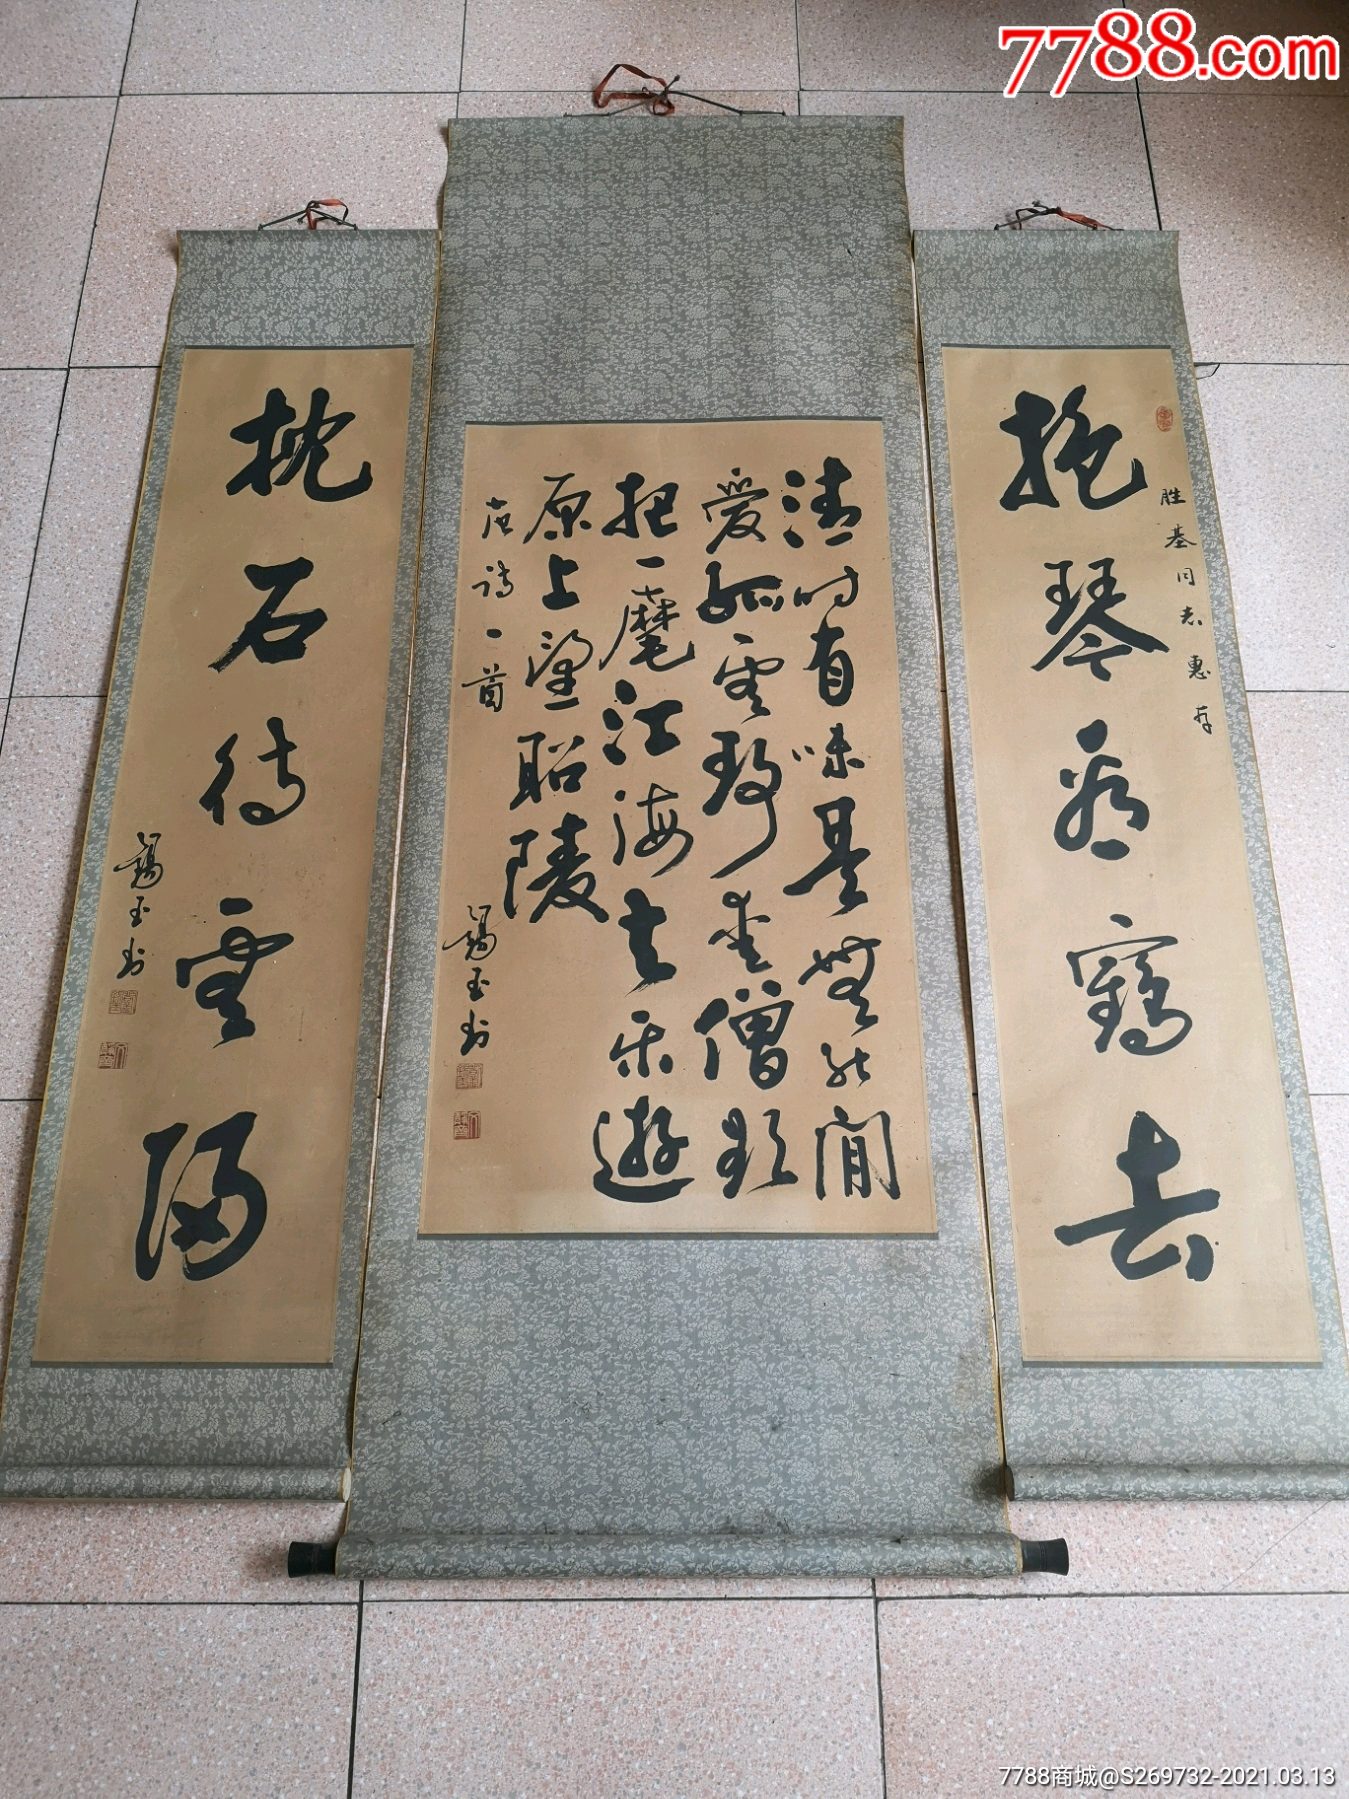 7788.com
抱琴看鶴去
胜基同志惠存
清时有味是無能閒
爱孤云静爱僧欲
把一麾江海去乐遊
原上望昭陵
唐诗一首
锡玉书
枕石待雲歸
锡玉书
7788商城@S269732-2021.03.13